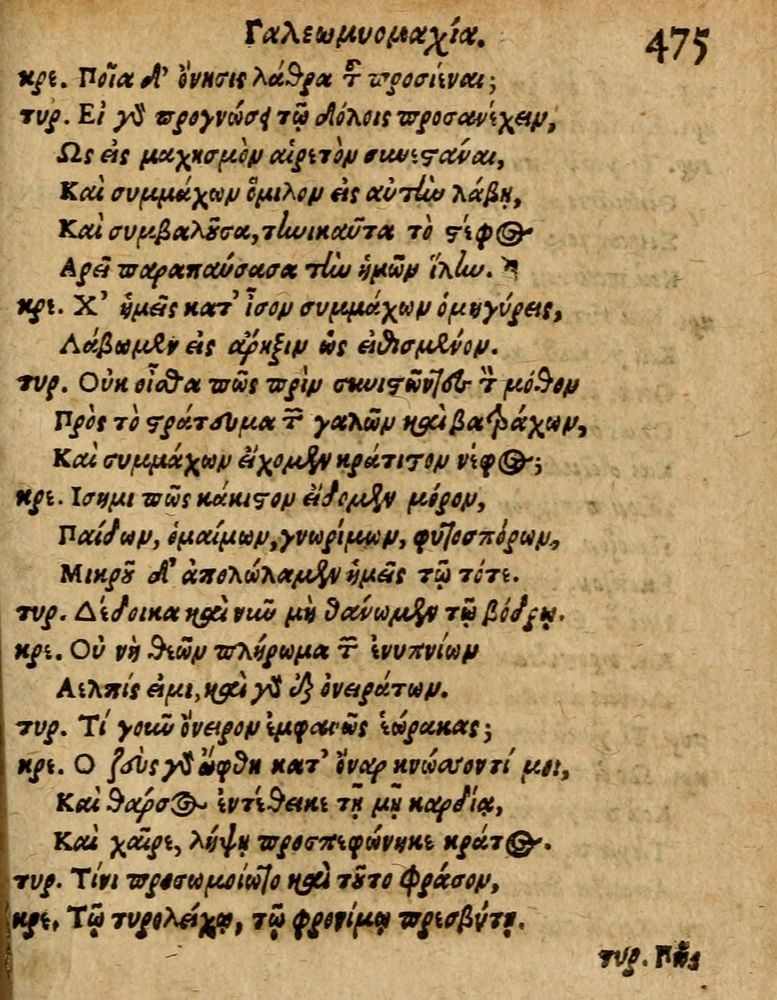 Γαλεωμυομαχία. 475
κρε. Ποῖα δ' ὄνησις λάθρα τ̃ προσιέναι;
τυρ. Εἰ γὸ προγνώσῃ τῷ δόλοις προσανέχειν,
Ως εἰς μαχησμὸν αἱρετὸν συνιστάναι,
Καὶ συμμάχων ὅμιλον εἰς αὐτὴν λάβῃ,
Καὶ συμβαλοῦσα, τηνικαῦτα τὸ στίφος
Αρεῖ παραπαύσασα τὴν ἡμῶν ἴλην.
κρε. Χ' ἡμεῖς κατ' ἶσον συμμάχων ὁμηγύρεις,
Λάβωμεν εἰς ἄρηξιν ὡς εἰθισμένον.
τυρ. Οὐκ οἶσθα πῶς πρὶν συνιστῶντες τὸν μόθον
Πρὸς τὸ στράτευμα τ̃ γαλῶν καὶ βατράχων,
Καὶ συμμάχων εἴχομεν κράτιστον νέφος;
κρε. Ισημι πῶς κάκιστον εἴδομεν μόρον,
Παίδων, ὁμαίμων, γνωρίμων, φυτοσπόρων,
Μικροῦ δ' ἀπολώλαμεν ἡμεῖς τῷ τότε.
τυρ. Δέδοικα καὶ νῦν μὴ θάνωμεν τῷ βόθρῳ.
κρε. Οὐ νὴ θεῶν πλήρωμα τ̃ ἐνυπνίων
Αελπίς εἰμι, καὶ γὸ ἐξ ὀνειράτων.
τυρ. Τί γοῦν ὄνειρον ἐμφανῶς ἑώρακας;
κρε. Ο ζεὺς γὸ ὤφθη κατ' ὄναρ κνώσοντί μοι,
Καὶ θάρσος ἐντέθεικε τῇ μῇ καρδίᾳ,
Καὶ χαῖρε, λήψῃ προσπεφώνηκε κράτος.
τυρ. Τίνι προσωμοίωτο καὶ τοῦτο φράσον,
κρε. Τῷ τυρολείχῳ, τῷ φρονίμῳ πρεσβύτῃ.
τυρ. Πῆς